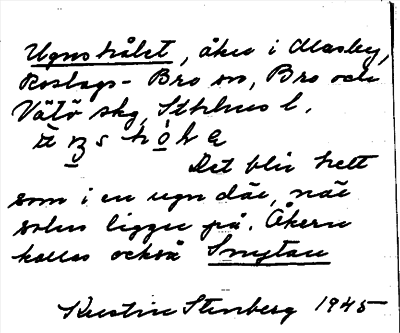 Ugnshålet, åker i Masby,
Roslags-Bro sn, Bro och
Vätö skg, Sthlms l.
Det blir hett
som i en ugn där, när
solen ligger på. Åkern
kallas också Snytan
Kerstin Stenberg 1945